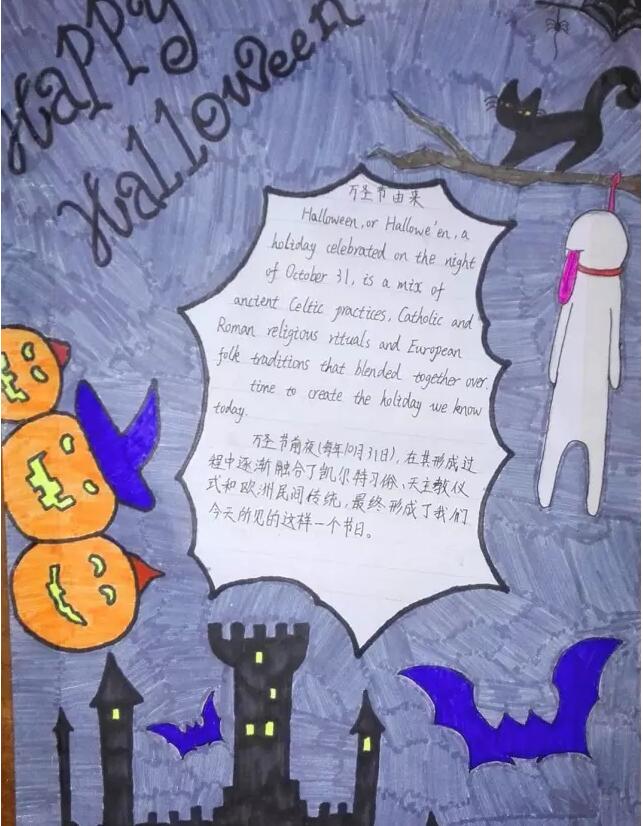 Happy
Halloween
万圣节由来
Halloween, or Hallowe'en, a
holiday celebrated on the night
of October 31, is a mix of
ancient Celtic practices, Catholic and
Roman religious rituals and European
folk traditions that blended together over.
time to create the holiday we know
today.
万圣节前夜(每年10月31日),在其形成过
程中逐渐融合了凯尔特习俗、天主教仪
式和欧洲民间传统,最终形成了我们
今天所见的这样一个节日。